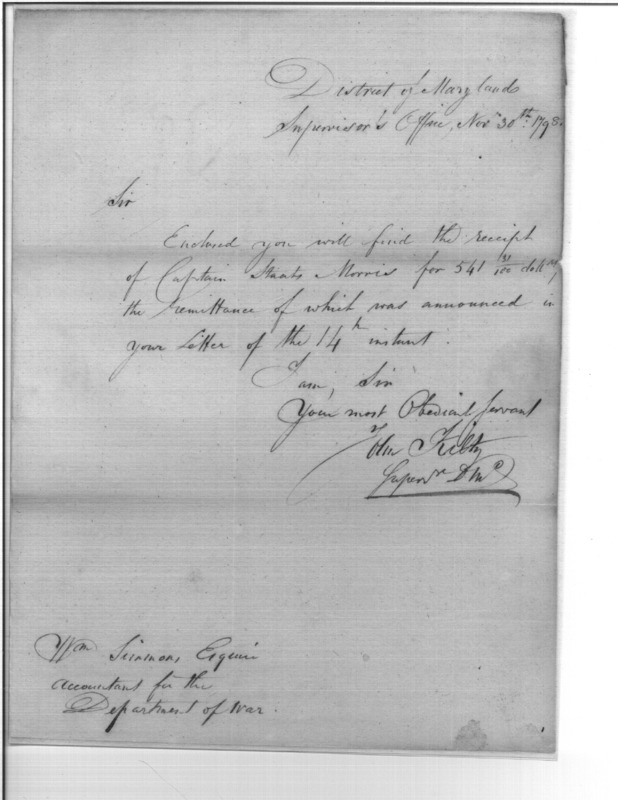 District of Maryland
Supervisor's Office, Nov 30th 1798.
Sir
Enclosed you will find the receipt
of Captain Staats Morris for 541 31/100 dollars,
the remittance of which was announced in
your Letter of the 14th instant.
I am, Sir
Your most Obedient Servant
Jno Kilty
Supervr. D Md
Wm Simmons, Esquire
Accountant for the
Department of War.